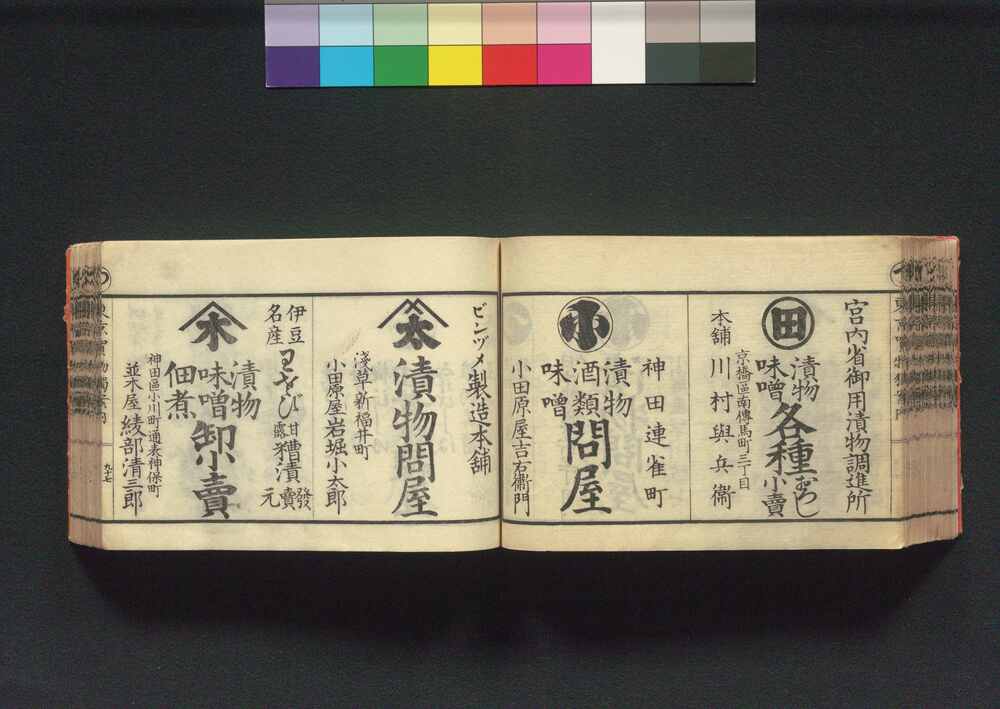 宮内省御用漬物調進所
田
漬物
味噌
各種
おろし
小賣
京橋區南傳馬町三丁目
本舖 川村與兵衞
神田連雀町
小
漬物
酒類
味噌
問屋
小田原屋吉右衞門
ビンヅメ製造本舖
太
漬物問屋
淺草新福井町
小田原屋岩堀小太郎
伊豆
名産
わさび
甘露
糟漬
發賣元
木
漬物
味噌
佃煮
卸小賣
神田區小川町通表神保町
並木屋 綾部清三郎
九十七